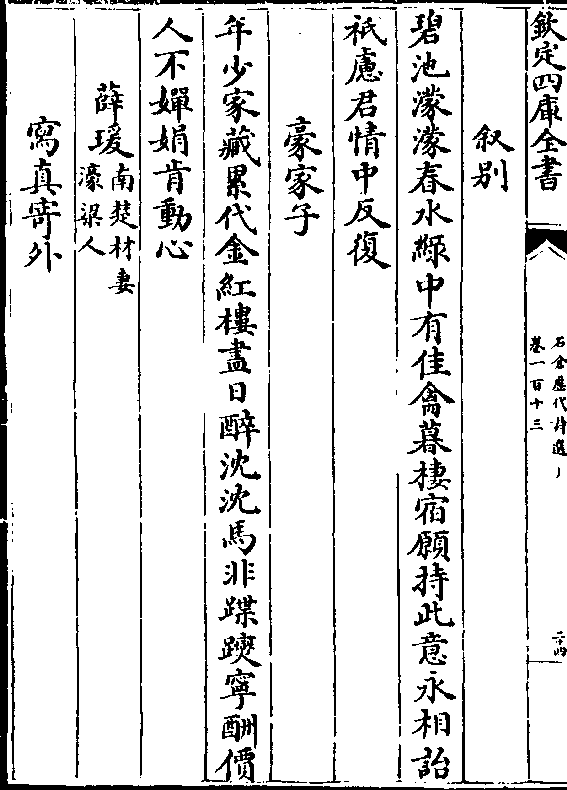 欽定四庫全書
石倉歷代詩選
卷一百十三
二十四
叙别
碧池濛濛春水緑中有佳禽暮棲宿願持此意永相詒
祇慮君情中反復
豪家子
年少家藏累代金紅樓盡日醉沈沈馬非蹀躞寧酬價
人不嬋娟肯動心
薛瑗南楚材妻
濠梁人
寫真寄外